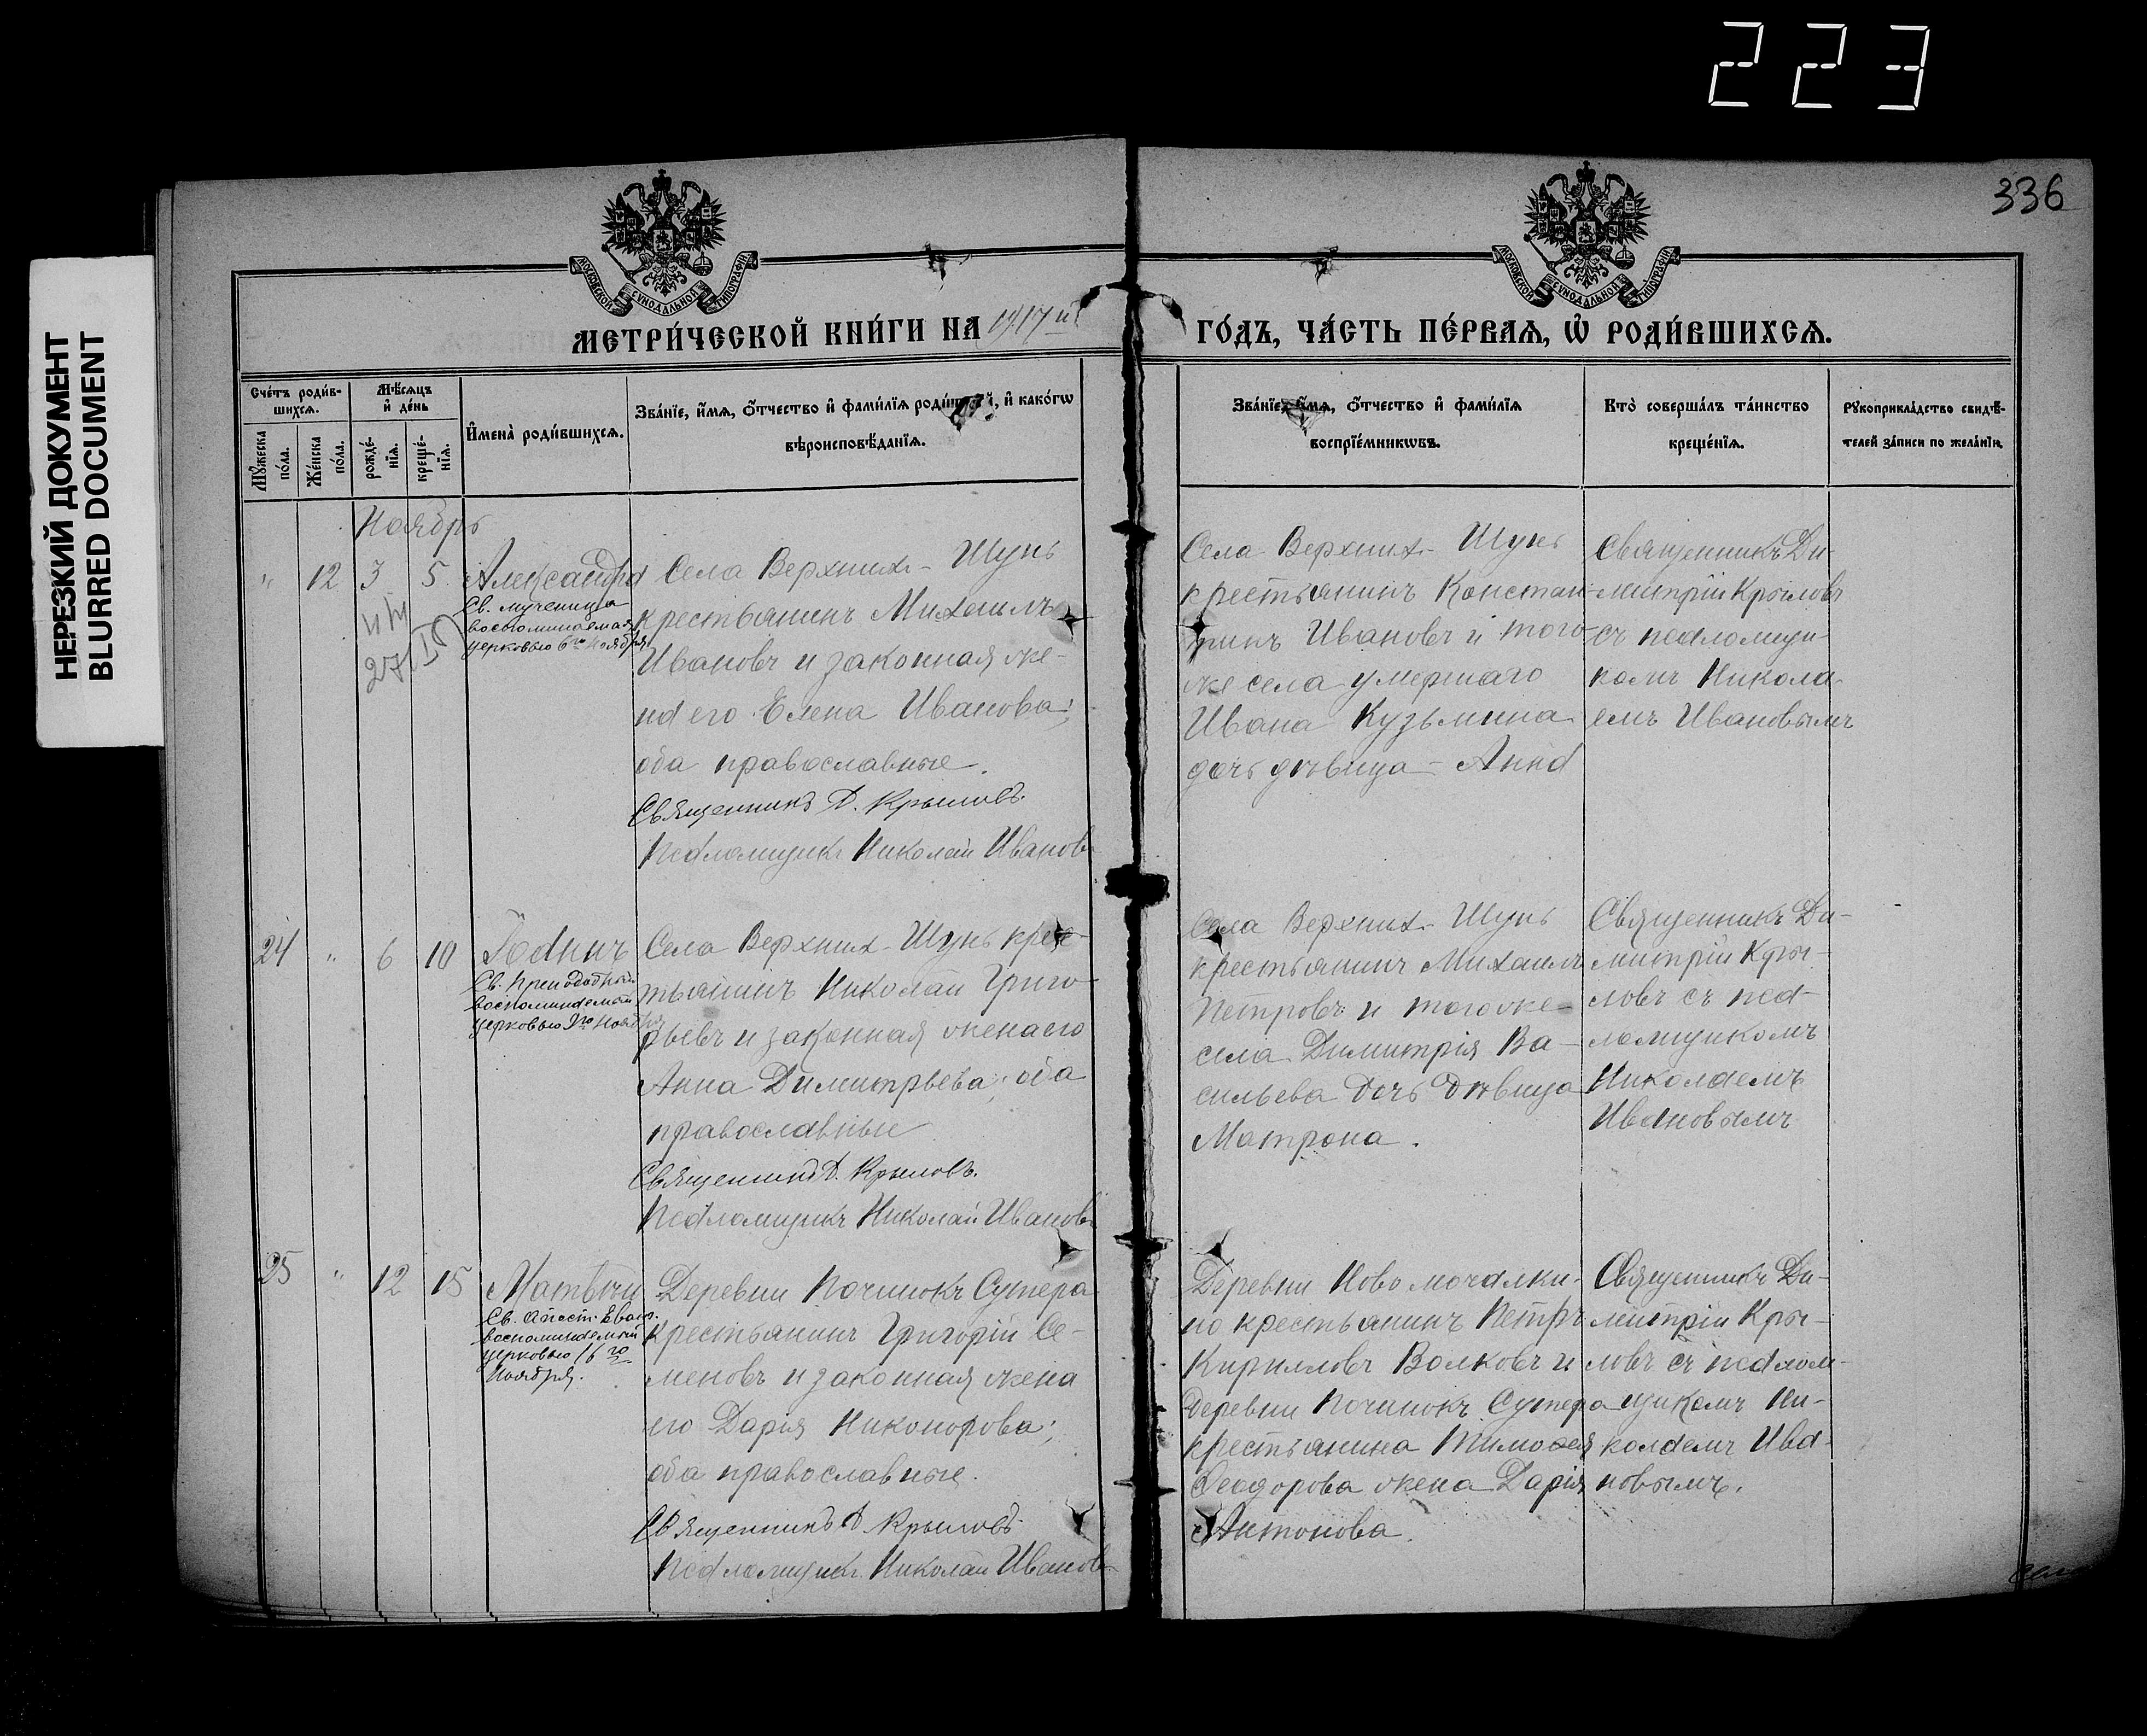 223
336
НЕРЕЗКИЙ ДОКУМЕНТ
BLURRED DOCUMENT
МОСКОВСКОЙ СѴНОДАЛЬНОЙ ТИПОГРАФІИ
МОСКОВСКОЙ СѴНОДАЛЬНОЙ ТИПОГРАФІИ
МЕТРИ́ЧЕСКОЙ КНИ́ГИ НА 1917й
ГО́ДЪ, ЧА́СТЬ ПЕ́РВАѦ, Ѽ РОДИ́ВШИХСѦ.
Сче́тъ роди́в-
шихсѧ.
Мѣ́сѧцъ
и҆ де́нь
Мꙋ́жеска
по́ла.
Же́нска
по́ла.
рожде́-
нїѧ.
креще́-
нїѧ.
И҆мена̀ роди́вшихсѧ.
Зва́нїе, и҆́мѧ, ѻ҆́тчество и҆ фами́лїѧ роди́телей, и҆ како́гѡ
вѣроисповѣ́данїѧ.
Зва́нїе, и҆́мѧ, ѻ҆́тчество и҆ фами́лїѧ
воспрїе́мникѡвъ.
Кто̀ соверша́лъ та́инство
креще́нїѧ.
Рꙋкоприкла́дство свидѣ́-
телей за́писи по жела́нїю.
Ноябрь
" 12 3 5
Александра
Св. мученица
воспоминаемая
церковью 6го Ноября
27/IV
Села Верхних-Шунь
крестьянинъ Михаилъ
Ивановъ и законная же-
на его Елена Иванова;
оба православные.
Священникъ Д. Крыловъ.
Псаломщикъ Николай Ивановъ
Села Верхних-Шунь
крестьянинъ Констан-
тинъ Ивановъ и того-
же села умершаго
Ивана Кузьмина
дочь дѣвица - Анна
Священникъ Ди-
митрій Крыловъ
съ псаломщи-
комъ Никола-
емъ Ивановымъ
24 " 6 10
Іоаннъ
Св. Преподобный
воспоминаемый
церковью 9го Ноября
Села Верхних-Шунь крес-
тьянинъ Николай Григо-
рьевъ и законная жена его
Анна Димитрьева; оба
православные
Священникъ Д. Крыловъ.
Псаломщикъ Николай Ивановъ
Села Верхних-Шунь
крестьянинъ Михаилъ
Петровъ и того же
села Димитрія Ва-
сильева дочь дѣвица
Матрона.
Священникъ Ди-
митрій Кры-
ловъ съ пса-
ломщикомъ
Николаемъ
Ивановымъ
25 " 12 15
Матвѣй
Св. Апост. Еванг.
воспоминаемый
церковью 16го
Ноября.
Деревни Починокъ Сутера
крестьянинъ Григорій Се-
меновъ и законная жена
его Дарія Никонорова;
оба православные.
Священникъ Д. Крыловъ
Псаломщикъ Николай Ивановъ
Деревни Ново мочалки-
но крестьянинъ Петръ
Кирилловъ Волковъ и
деревни Починокъ Сутера
крестьянина Тимоѳея
Ѳеодорова жена Дарія
Антонова.
Священникъ Ди-
митрій Кры-
ловъ съ псалом-
щикомъ Ни-
колаемъ Ива-
новымъ.